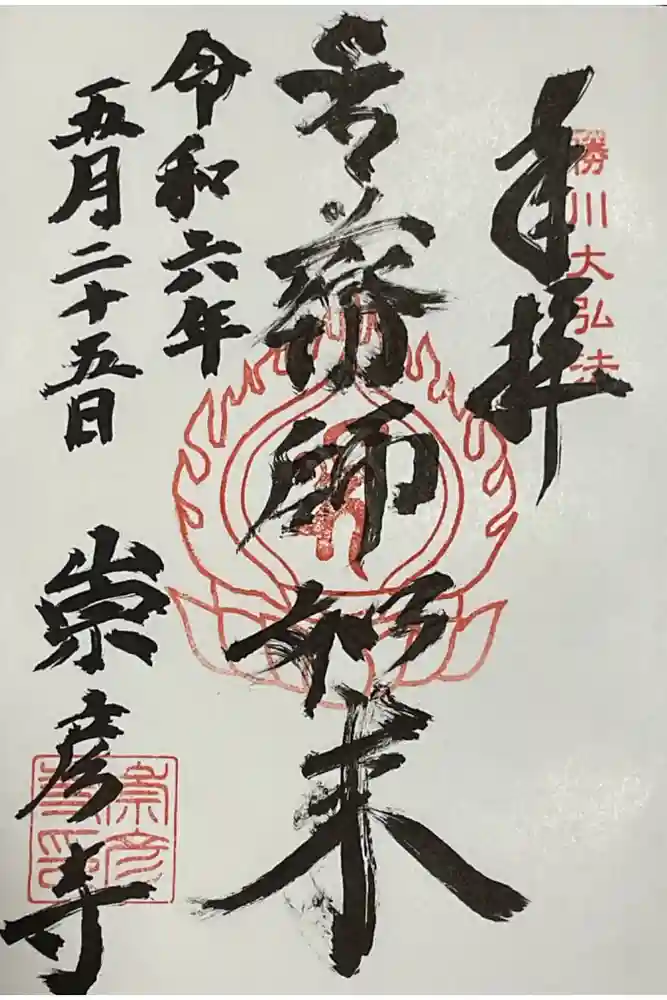 奉拝
勝川大弘法
薬師如来
令和六年
五月二十五日
崇彦寺
崇彦寺印